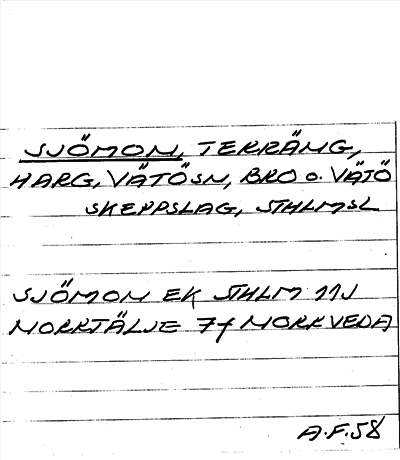 SJÖMON, TERRÄNG,
HARG, VÄTÖSN, BRO o. VÄTÖ
SKEPPSLAG, STHLMSL
SJÖMON EK STHLM 11J
NORRTÄLJE 7f NORRVEDA
A.F.58